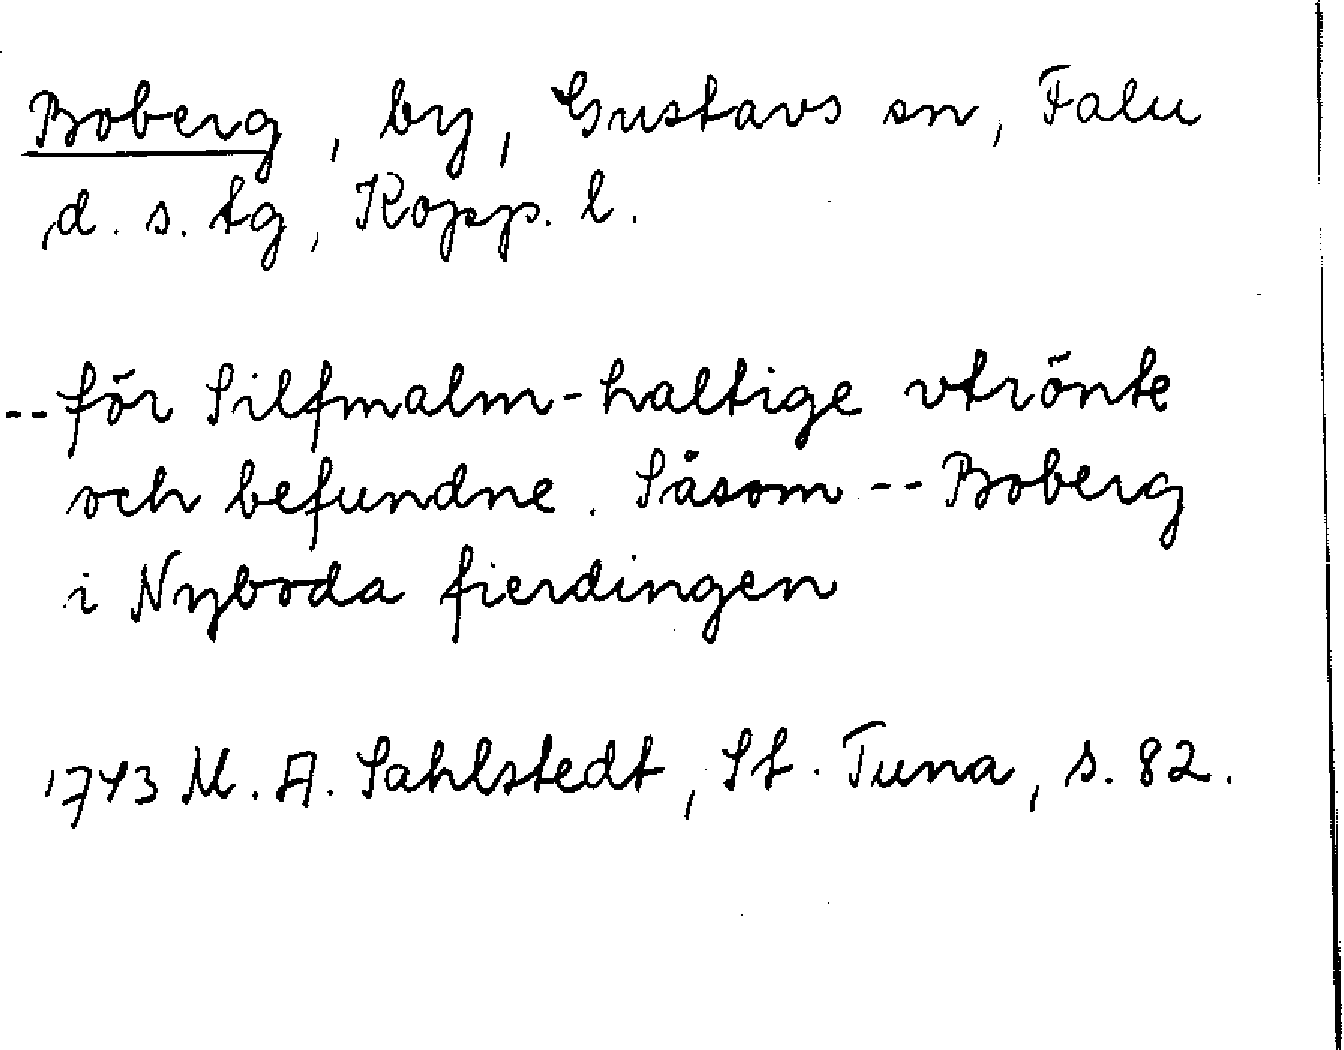 Boberg, by, Gustavs sn, Falu
d. s. tg, Kopp. l.
-- för Silfmalm-haltige vtrönte
och befundne. Såsom -- Boberg
i Nyboda fierdingen
1743 M. A. Sahlstedt, St. Tuna, s. 82.